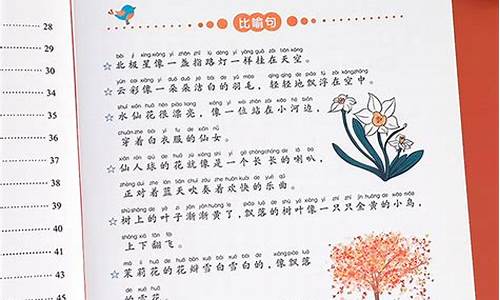 比喻句
běi jí xīng xiàng yì zhǎn zhǐ lù dēng yí yàng guà zài tiān kōng
☆北极星像一盏指路灯一样挂在天空。
yún cai xiàng yì duǒ duǒ jié bái de yǔ máo qīng qīng de piāo fú zài kōng zhōng
☆云彩像一朵朵洁白的羽毛，轻轻地飘浮在空中。
shuǐ xiān huā hěn piào liang xiàng yí wèi zhàn zài xiǎo hé biān
☆水仙花很漂亮，像一位站在小河边，
chuān zhe bái yī fu de xiān nǚ
穿着白衣服的仙女。
xiān rén qiú de huā jiù xiàng shì yí gè cháng cháng de lǎ ba
☆仙人球的花就像是一个长长的喇叭，
zhèng duì zhe lán tiān chuī zòu zhe huān kuài de yuè qǔ
正对着蓝天吹奏着欢快的乐曲。
shù shàng de yè zi jiàn jiàn huáng le piāo luò de shù yè xiàng yì zhī zhī jīn huáng de xiǎo niǎo
☆树上的叶子渐渐黄了，飘落的树叶像一只只金黄的小鸟，
shàng xià fān fēi
上下翻飞。
mò lì huā de huā bàn xuě bái xuě bái de xiàng piāo luò
☆茉莉花的花瓣雪白雪白的，像飘落
的雪花。
28
34
25
35
36
38
39
40
41
45
43